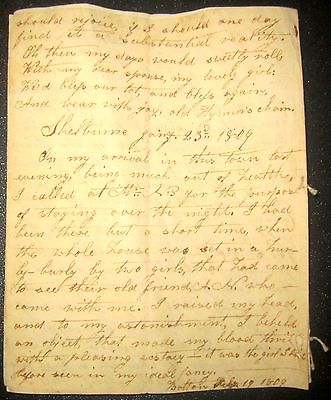 should rejoice, if I should one day
find it a substantial reality.
Oh then my days would sweetly roll
With my dear spouse, my lovely girl.
We'd bless our lot, and bless again,
And wear with joy, old Hymen's chain.
Shelburne Jany. 23d. 1809
On my arrival in this town last
evening, being much out of health,
I called at Mr. for the purpose
of staying over the night. I had
been there but a short time, when
the whole house was set in a hur-
ly-burly by two girls, that had come
to see their old friend, A. N. who
came with me. I raised my head,
and to my astonishment, I beheld
an object, that made my blood
with a pleasing ecstacy - it was the girl I had
before seen in my ideal fancy.
Bolton 19 1809